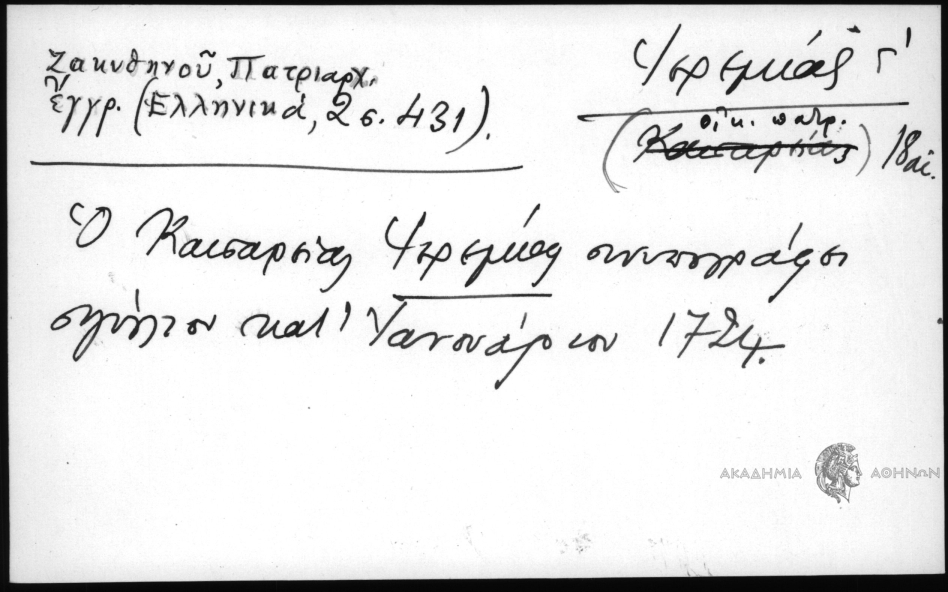 Ζακυθηνοῦ, Πατριαρχ.
ἔγγρ. (Ἑλληνικά, 2 σ. 431).
Ἱερεμίας Γ'
οἰκ. πατρ.
(Καισαρείας) 18 αἰ.
Ὁ Καισαρείας Ἱερεμίας συνυπογράφει
σιγίλλιον κατ' Ἰανουάριον 1724.
ΑΚΑΔΗΜΙΑ ΑΘΗΝΩΝ